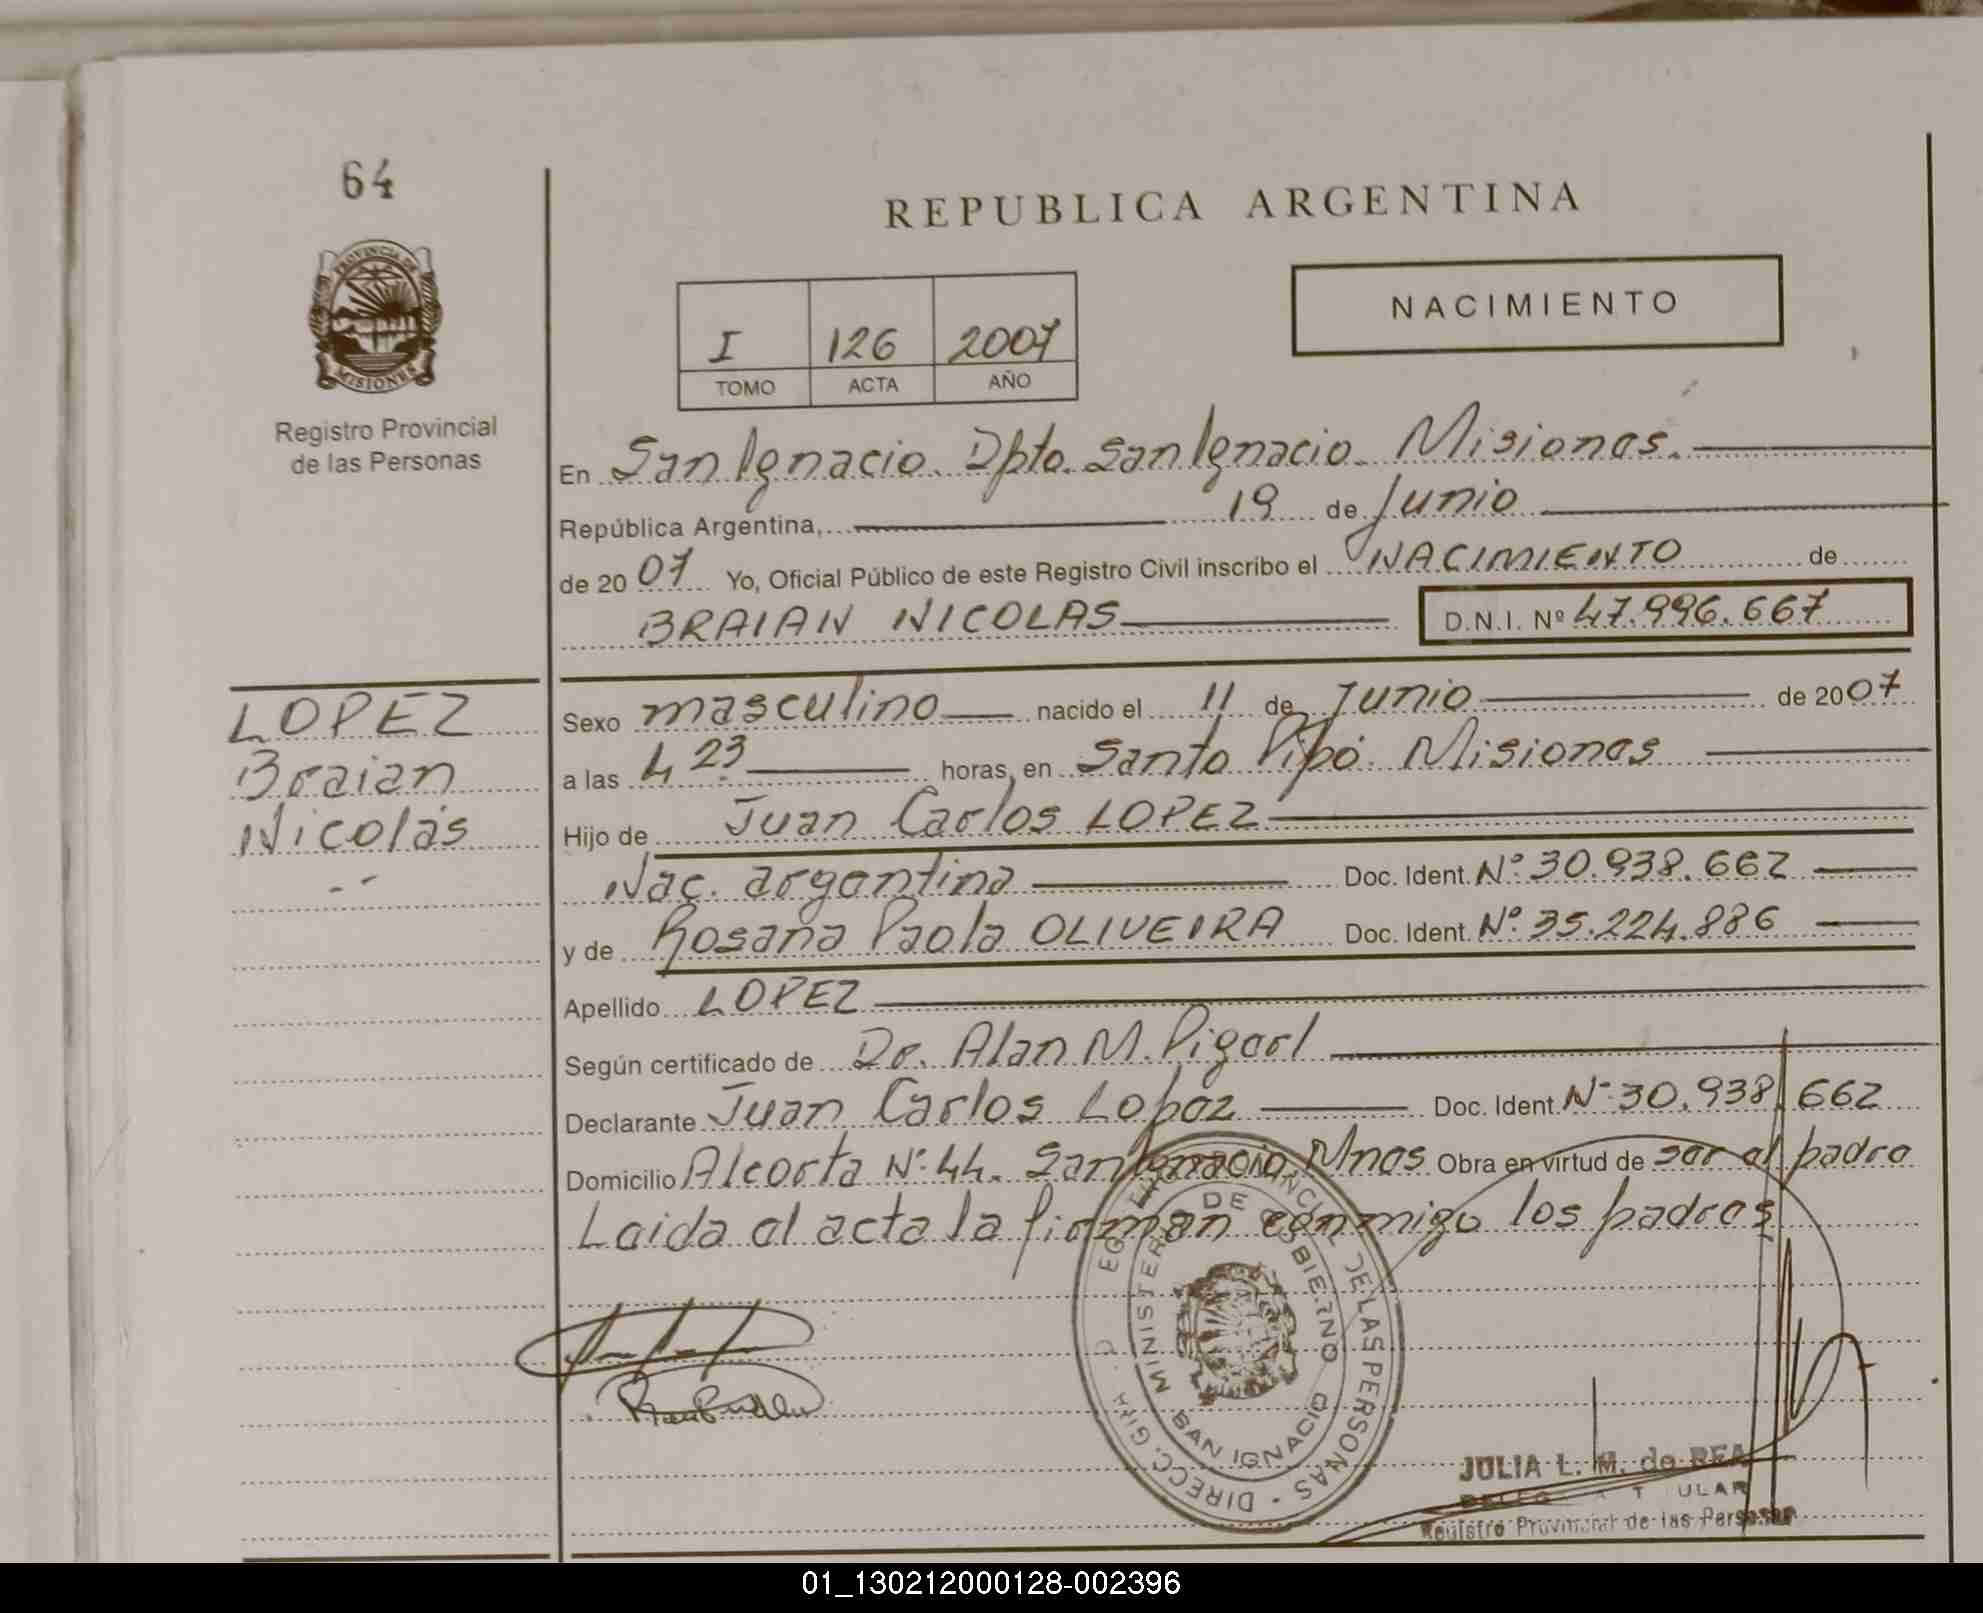 64
REPUBLICA ARGENTINA
PROVINCIA DE
MISIONES
NACIMIENTO
I 126 2007
TOMO ACTA AÑO
Registro Provincial
de las Personas
En San Ignacio. Dpto. San Ignacio. Misiones.
República Argentina, 19 de Junio
de 2007 Yo, Oficial Público de este Registro Civil inscribo el NACIMIENTO de
BRAIAN NICOLAS D.N.I. Nº 47.996.667
LOPEZ
Braian
Nicolás
Sexo masculino nacido el 11 de Junio de 2007
a las 4 23 horas, en Santo Pipó. Misiones
Hijo de Juan Carlos LOPEZ
Nac. argentina Doc. Ident. Nº 30.938.662
y de Rosana Paola OLIVEIRA Doc. Ident. Nº 35.224.886
Apellido LOPEZ
Según certificado de Dr. Alan M.
Declarante Juan Carlos Lopez Doc. Ident. Nº 30.938.662
Domicilio Alcorta Nº 44. San Ignacio, Mnes Obra en virtud de ser el padre
Leida el acta la firman conmigo los padres
MINISTERIO DE GOBIERNO
SAN IGNACIO
DE LAS PERSONAS
JULIA L. M. de REA
Registro Provincial de las Personas
01_130212000128-002396